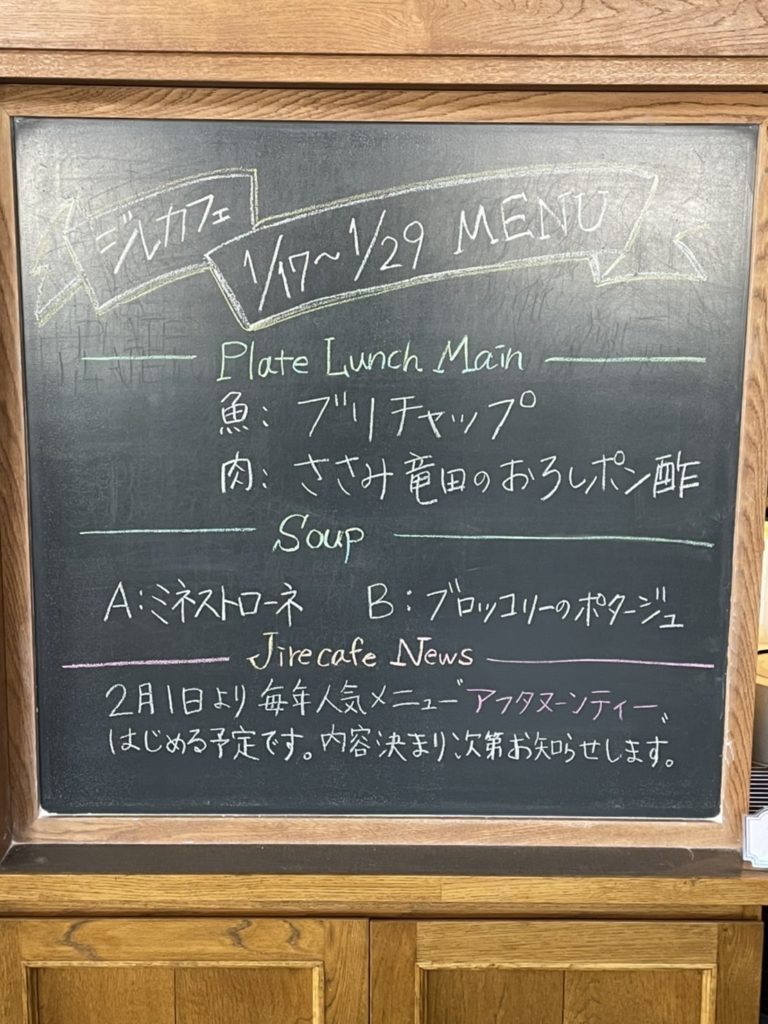 ジルカフェ
1/17～1/29 MENU
Plate Lunch Main
魚: ブリチャップ
肉: ささみ竜田のおろしポン酢
Soup
A:ミネストローネ B:ブロッコリーのポタージュ
Jirecafe News
2月1日より毎年人気メニュー"アフタヌーンティー"
はじめる予定です。内容決まり次第お知らせします。